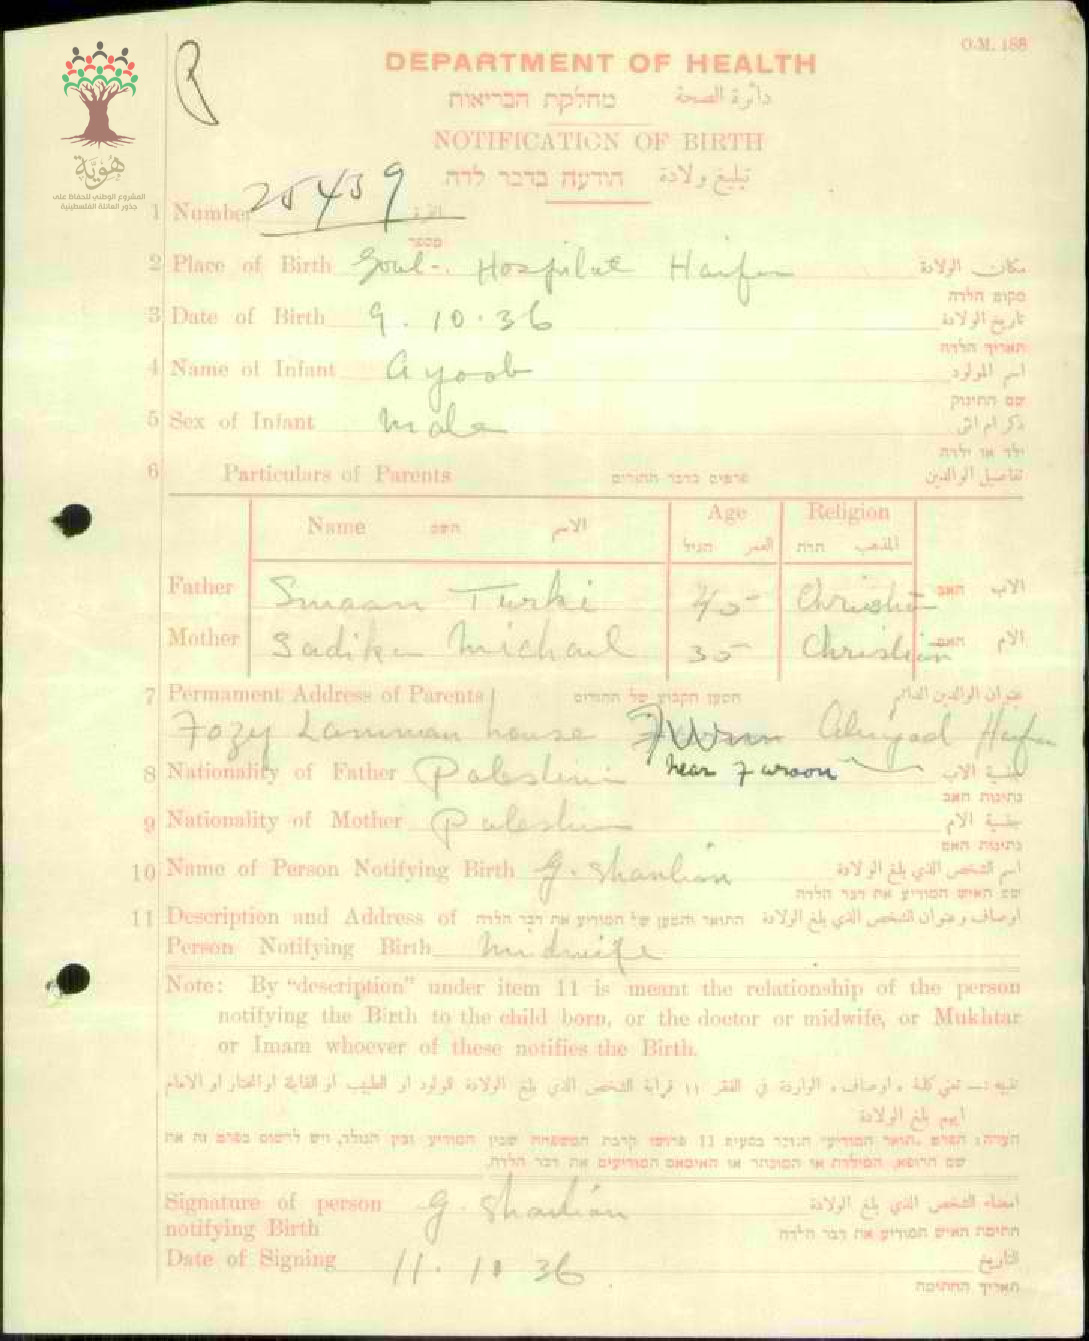 O.M. 188
DEPARTMENT OF HEALTH
מחלקת הבריאות دائرة الصحة
NOTIFICATION OF BIRTH
הודעה בדבר לדה تبليغ ولادة
هُوِيَّة
المشروع الوطني للحفاظ على
جذور العائلة الفلسطينية
1 Number 25459 النمرة
מספר
2 Place of Birth Govt. Hospital Haifa مكان الولادة
מקום הלדה
3 Date of Birth 9.10.36 تاريخ الولادة
תאריך הלדה
4 Name of Infant Ayoob اسم المولود
שם התינוק
5 Sex of Infant Male ذكر ام انثى
ילד או ילדה
6 Particulars of Parents פרטים בדבר ההורים تفاصيل الوالدين
Name השם الاسم Age Religion
הגיל العمر הדת المذهب
Father Smaan Turki 45 Christian האב الاب
Mother Sadika Michail 35 Christian האם الام
7 Permament Address of Parents המען הקבוע של ההורים عنوان الوالدين الدائم
Fozy Lamman house Haifa
8 Nationality of Father Palestini near Faroon جنسية الاب
נתינות האב
9 Nationality of Mother Palestin جنسية الام
נתינות האם
10 Name of Person Notifying Birth G. Shanlian اسم الشخص الذي بلغ الولادة
שם האיש המודיע את דבר הלדה
11 Description and Address of התואר והמען של המודיע את דבר הלדה اوصاف وعنوان الشخص الذي بلغ الولادة
Person Notifying Birth Midwife
Note: By “description” under item 11 is meant the relationship of the person
notifying the Birth to the child born, or the doctor or midwife, or Mukhtar
or Imam whoever of these notifies the Birth.
تنبيه:— تعني كلمة «اوصاف» الواردة في الفقر ١١ قرابة الشخص الذي بلغ الولادة للولود او الطبيب او القابلة او المختار او الامام
ايهم بلغ الولادة
הערה: הפרט "תואר המודיע" הנזכר בסעיף 11 פרושו קרבת המשפחה שבין המודיע ובין הנולד, ויש לרשום בפרט זה את
שם הרופא, המילדת או המוכתר או האימאם המודיעים את דבר הלדה.
Signature of person G. Shanlian امضاء الشخص الذي بلغ الولادة
notifying Birth חתימת האיש המודיע את דבר הלדה
Date of Signing 11.10 36 التاريخ
תאריך החתימה